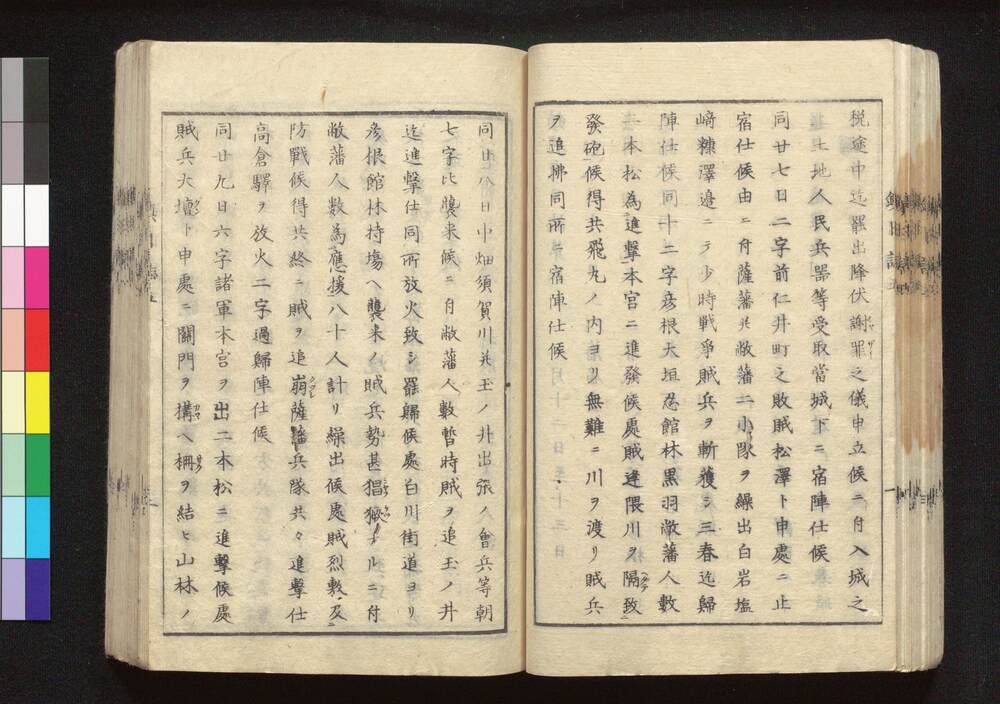 税途中迄罷出降伏謝罪之儀申立候ニ付入城之
上土地人民兵器等受取當城下ニ宿陣仕候
同廿七日二字前仁井町之敗賊松澤ト申處ニ止
宿仕候由ニ付薩藩共敝藩二小隊ヲ繰出白岩塩
﨑糠澤邉ニテ少時戦争賊兵ヲ斬獲シ三春迄歸
陣仕候同十二字彦根大垣忍館林黒羽敝藩人數
二本松為進撃本宮ニ進發候處賊逢隈川ヲ隔致
發砲候得共飛丸ノ内ヨリ無難ニ川ヲ渡リ賊兵
ヲ追拂同所ニ宿陣仕候
同廿八日中畑須賀川并玉ノ井出張ノ會兵等朝
七字比襲来候ニ付敝藩人數暫時賊ヲ追玉ノ井
迄進撃仕同所放火致シ罷歸候處白川街道ヨリ
彦根館林持塲ヘ襲来ノ賊兵勢甚猖獗ナルニ付
敝藩人數為應援八十人計リ繰出候處賊烈敷及
防戰候得共終ニ賊ヲ追崩薩藩兵隊共々追撃仕
高倉驛ヲ放火二字過歸陣仕候
同廿九日六字諸軍本宮ヲ出二本松ニ進撃候處
賊兵大壇ト申處ニ關門ヲ搆ヘ柵ヲ結ヒ山林ノ